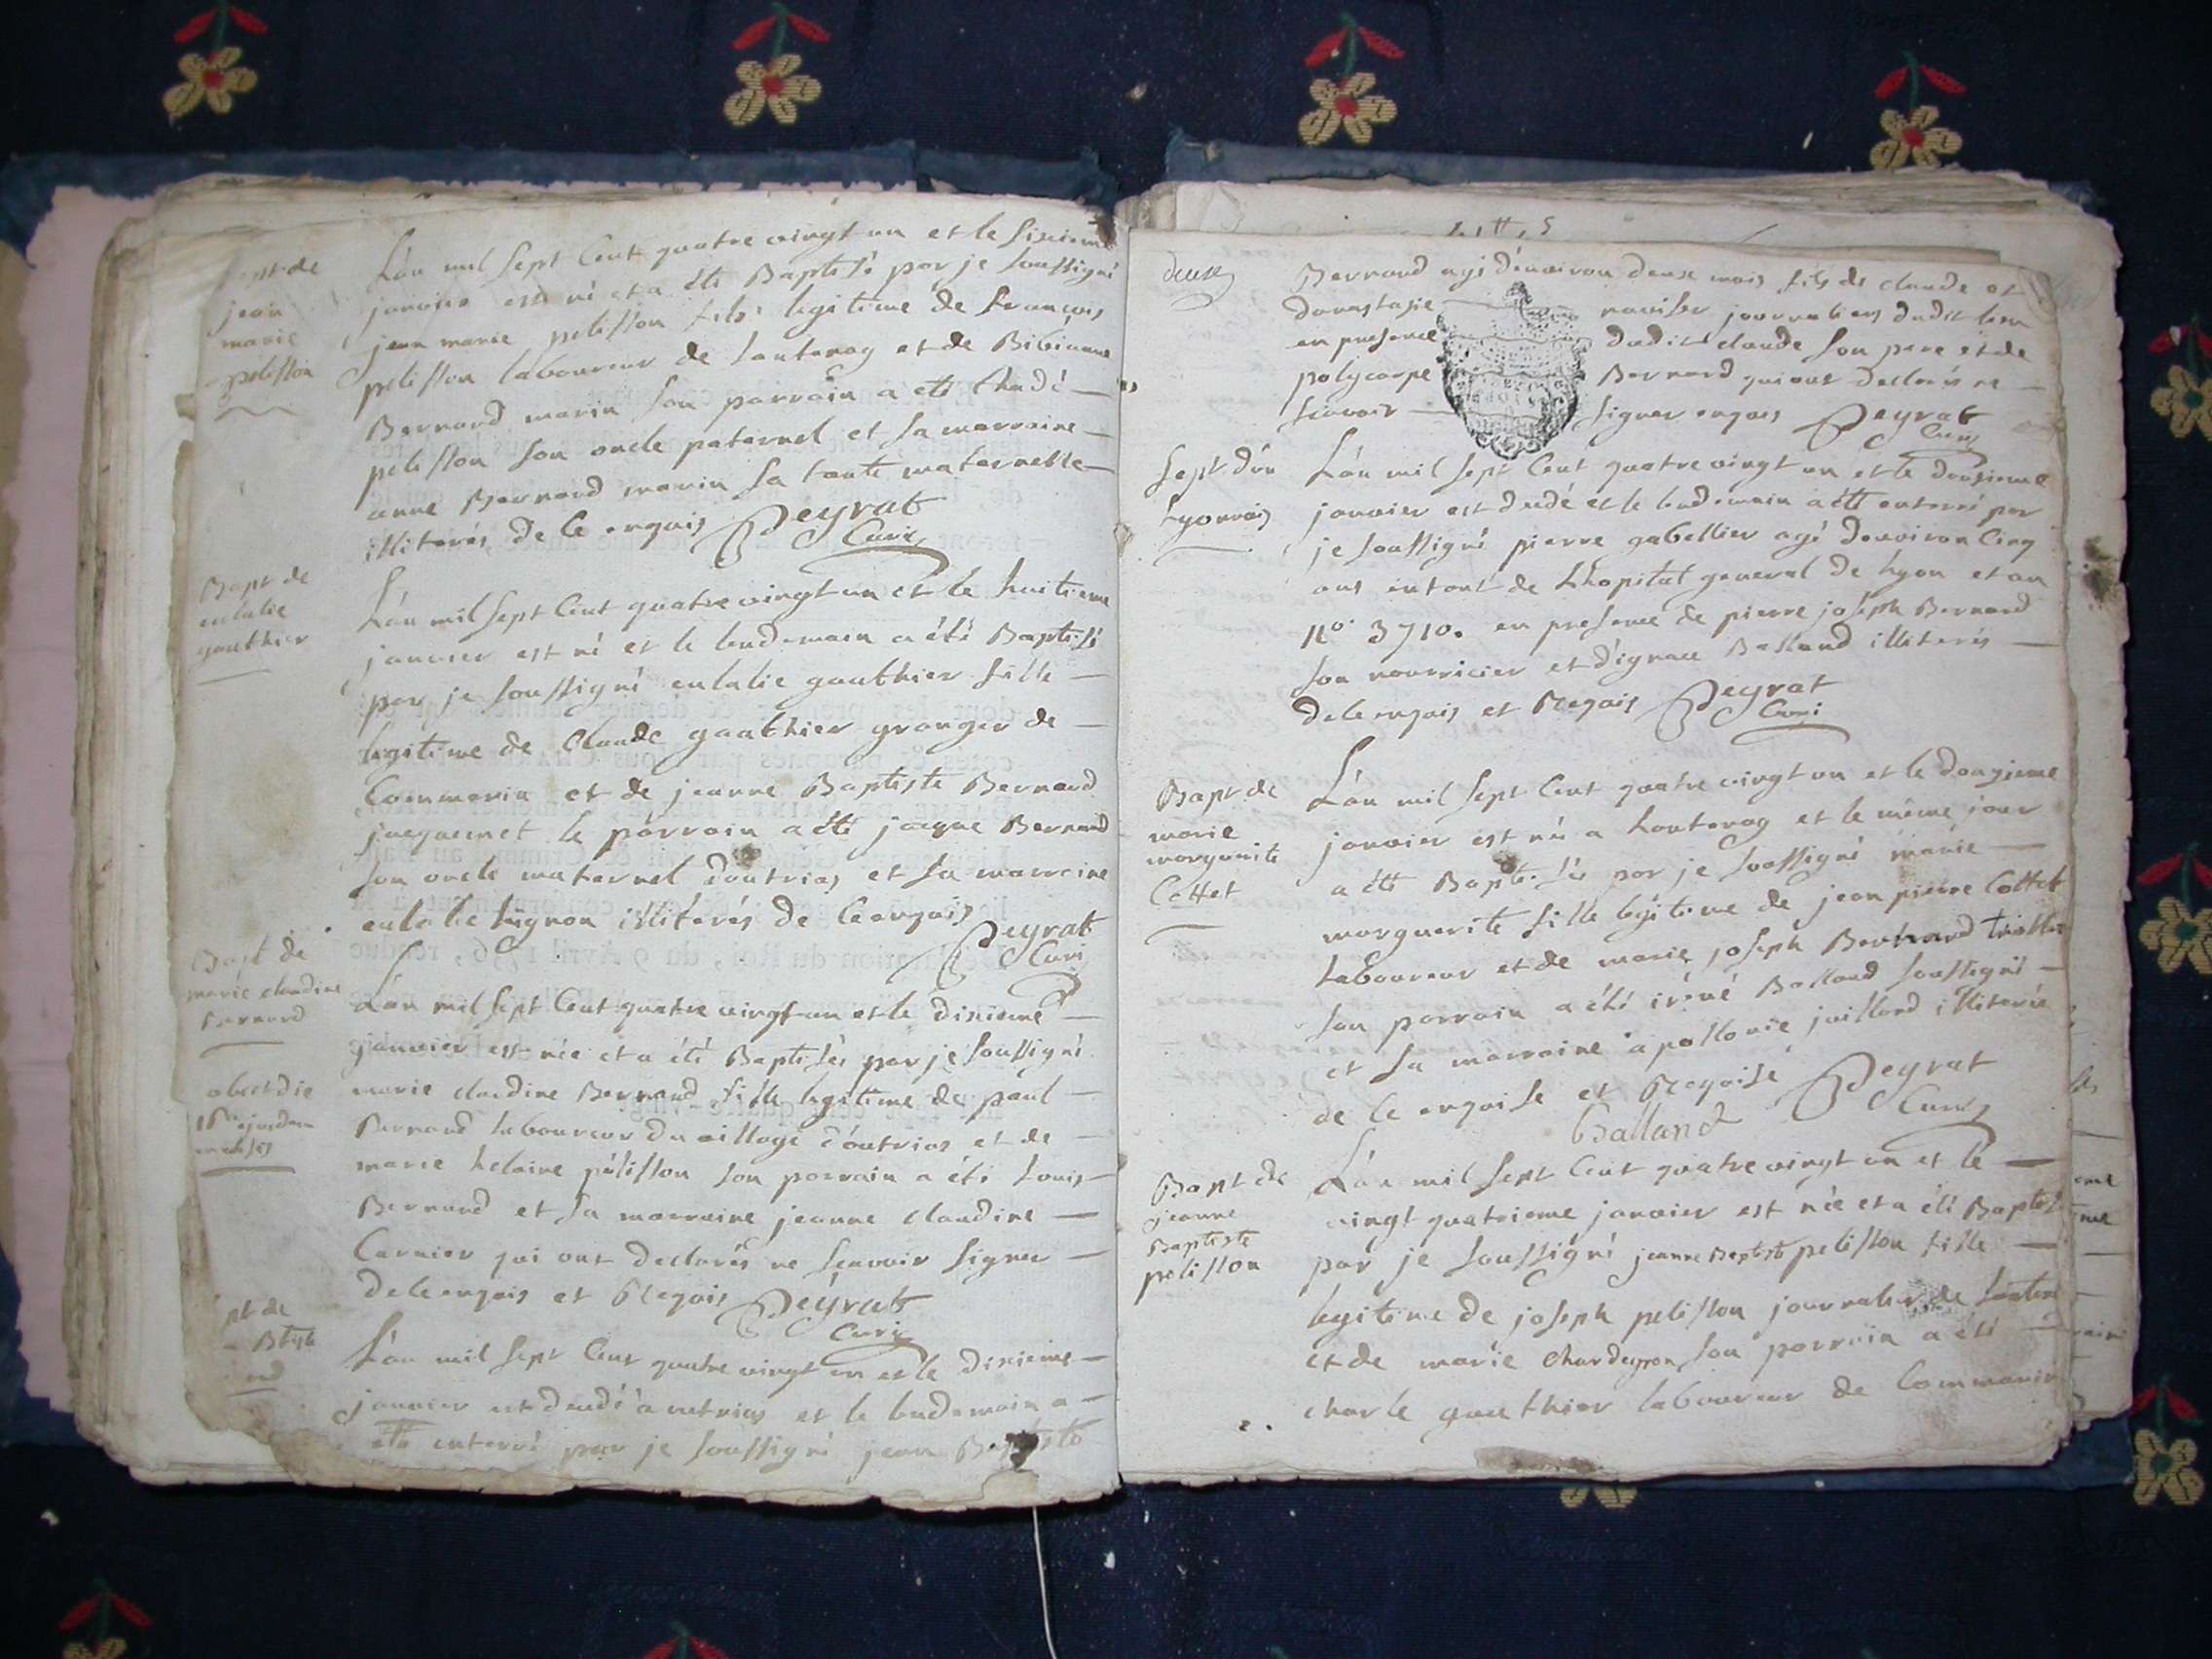 Bapt de
jean
marie
pelisson
L'an mil sept Cent quatre vingt un et le sixieme
janvier est né et a été Baptisé par je soussigné
jean marie pelisson fils legitime de françois
pelisson laboureur de lantenay et de Bibianne
Bernard marin son parrain a été thadé
pelisson son oncle paternel et sa marraine
anne Bernard marin sa tante maternelle
illiterés de ce enquis Peyrat
Curé
Bapt de
eulalie
gauthier
L'an mil sept Cent quatre vingt un et le huitieme
janvier est né et le lendemain a été Baptisé
par je soussigné eulalie gauthier fille
legitime de Claude gauthier granger de
Commerin et de jeanne Baptiste Bernard
jacquemet le parrain a été jacque Bernard
son oncle maternel d'outriaz et sa marraine
eulalie illiterés de ce enquis
Peyrat
Curé
Bapt de
marie claudine
Bernard
L'an mil sept Cent quatre vingt un et le dixieme
janvier est née et a été Baptisée par je soussigné
marie claudine Bernard fille legitime de paul
Bernard laboureur du village d'outriaz et de
marie helaine pélisson son parrain a été louis
Bernard et sa marraine jeanne claudine
Carrier qui ont declarés ne sçavoir signer
de ce enquis et Reqois Peyrat
Curé
obiit die
ejusdem
mensis
pt de
Btiste
L'an mil sept Cent quatre vingt un et le dixieme
janvier est decedé à outriaz et le lendemain a
été enterré par je soussigné jean Baptiste
deux
Bernard agé d'environ deux mois fils de claude et
danastasie raviser journaliers dudit lieu
en presence dudit claude son pere et de
polycarpe Bernard qui ont declarés ne
scavoir signer enquis Peyrat
Curé
sept d'un
Lyonnois
L'an mil sept Cent quatre vingt un et le douzieme
janvier est decedé et le lendemain a été enterré par
je soussigné pierre gabellier agé denviron Cinq
ans entant de l'hopital general de Lyon et au
No. 3710. en presence de pierre joseph Bernard
son nourricier et d'ignace Balland illiterés
de ce enquis et Reqois Peyrat
Curé
Bapt de
marie
marguerite
Cottet
L'an mil sept Cent quatre vingt un et le douzieme
janvier est née a lantenay et le même jour
a été Baptisée par je soussigné marie
marguerite fille legitime de jean pierre Cottet
laboureur et de marie joseph Bernard
son parrain a été iréné Balland soussigné
et sa marraine apollonie juilland illiterée
de ce enquise et Reqoise Peyrat
Balland Curé
Bapt de
jeanne
Baptiste
pelisson
L'an mil sept Cent quatre vingt un et le
vingt quatrieme janvier est née et a été Baptisé
par je soussigné jeanne Baptiste pelisson fille
legitime de joseph pelisson journalier de lantenay
et de marie chardeyron son parrain a été
charle gauthier laboureur de Commerin